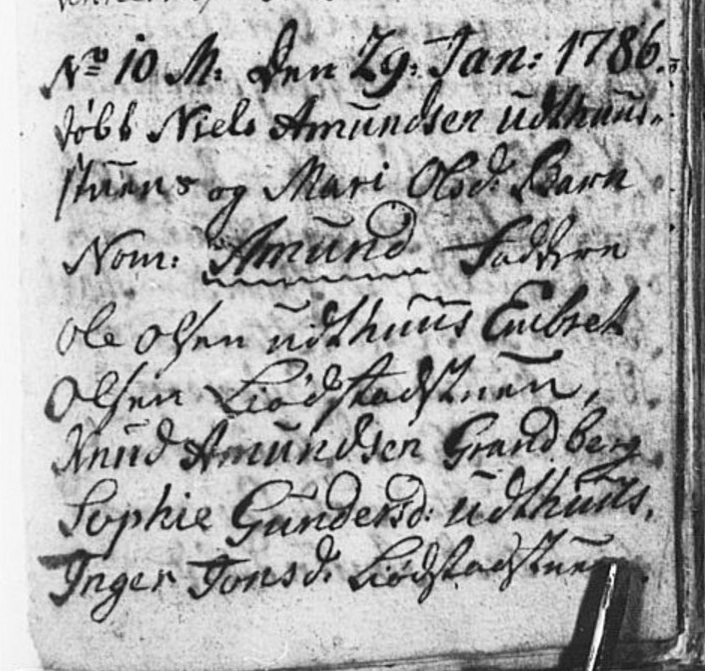 No 10 M: Den 29: Jan: 1786.
døbt Niels Amundsen udthuus-
stuens og Mari Olsd: Barn
Nom: Amund Faddere
Ole Olsen udthuus Embret
Olsen Liødstadstuen,
Knud Amundsen Grandberg
Sophie Gundersd: udthuus,
Inger Jonsd: Liødstadstuen.